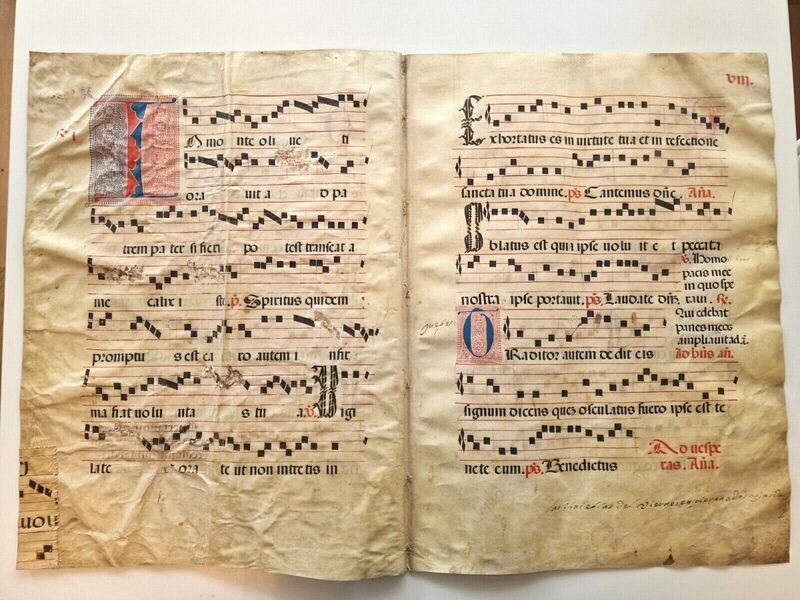 N mo nte oli ue ti
ora uit a d pa
trem pa ter si fieri po test transeat a
me calix i ste. Spiritus quidem
promptu s est ca ro autem i nfir
ma fiat uolu nta s tu a. Vigi
late et ora te ut non intretis in
uou
VIII.
Exhortatus es in uirtute tua et in refectione
sancta tua domine. ps Cantemus dñe. Aña.
Oblatus est quia ipse uolu it et peccata
nostra ipse portauit. ps Laudate
V. Homo
pacis mee
in quo spe
raui. Re.
Qui edebat
panes meos
ampliauit ad
Traditor autem dedit eis
signum dicens quem osculatus fuero ipse est te
nete eum. ps. Benedictus
Ad uespe
ras. Aña.